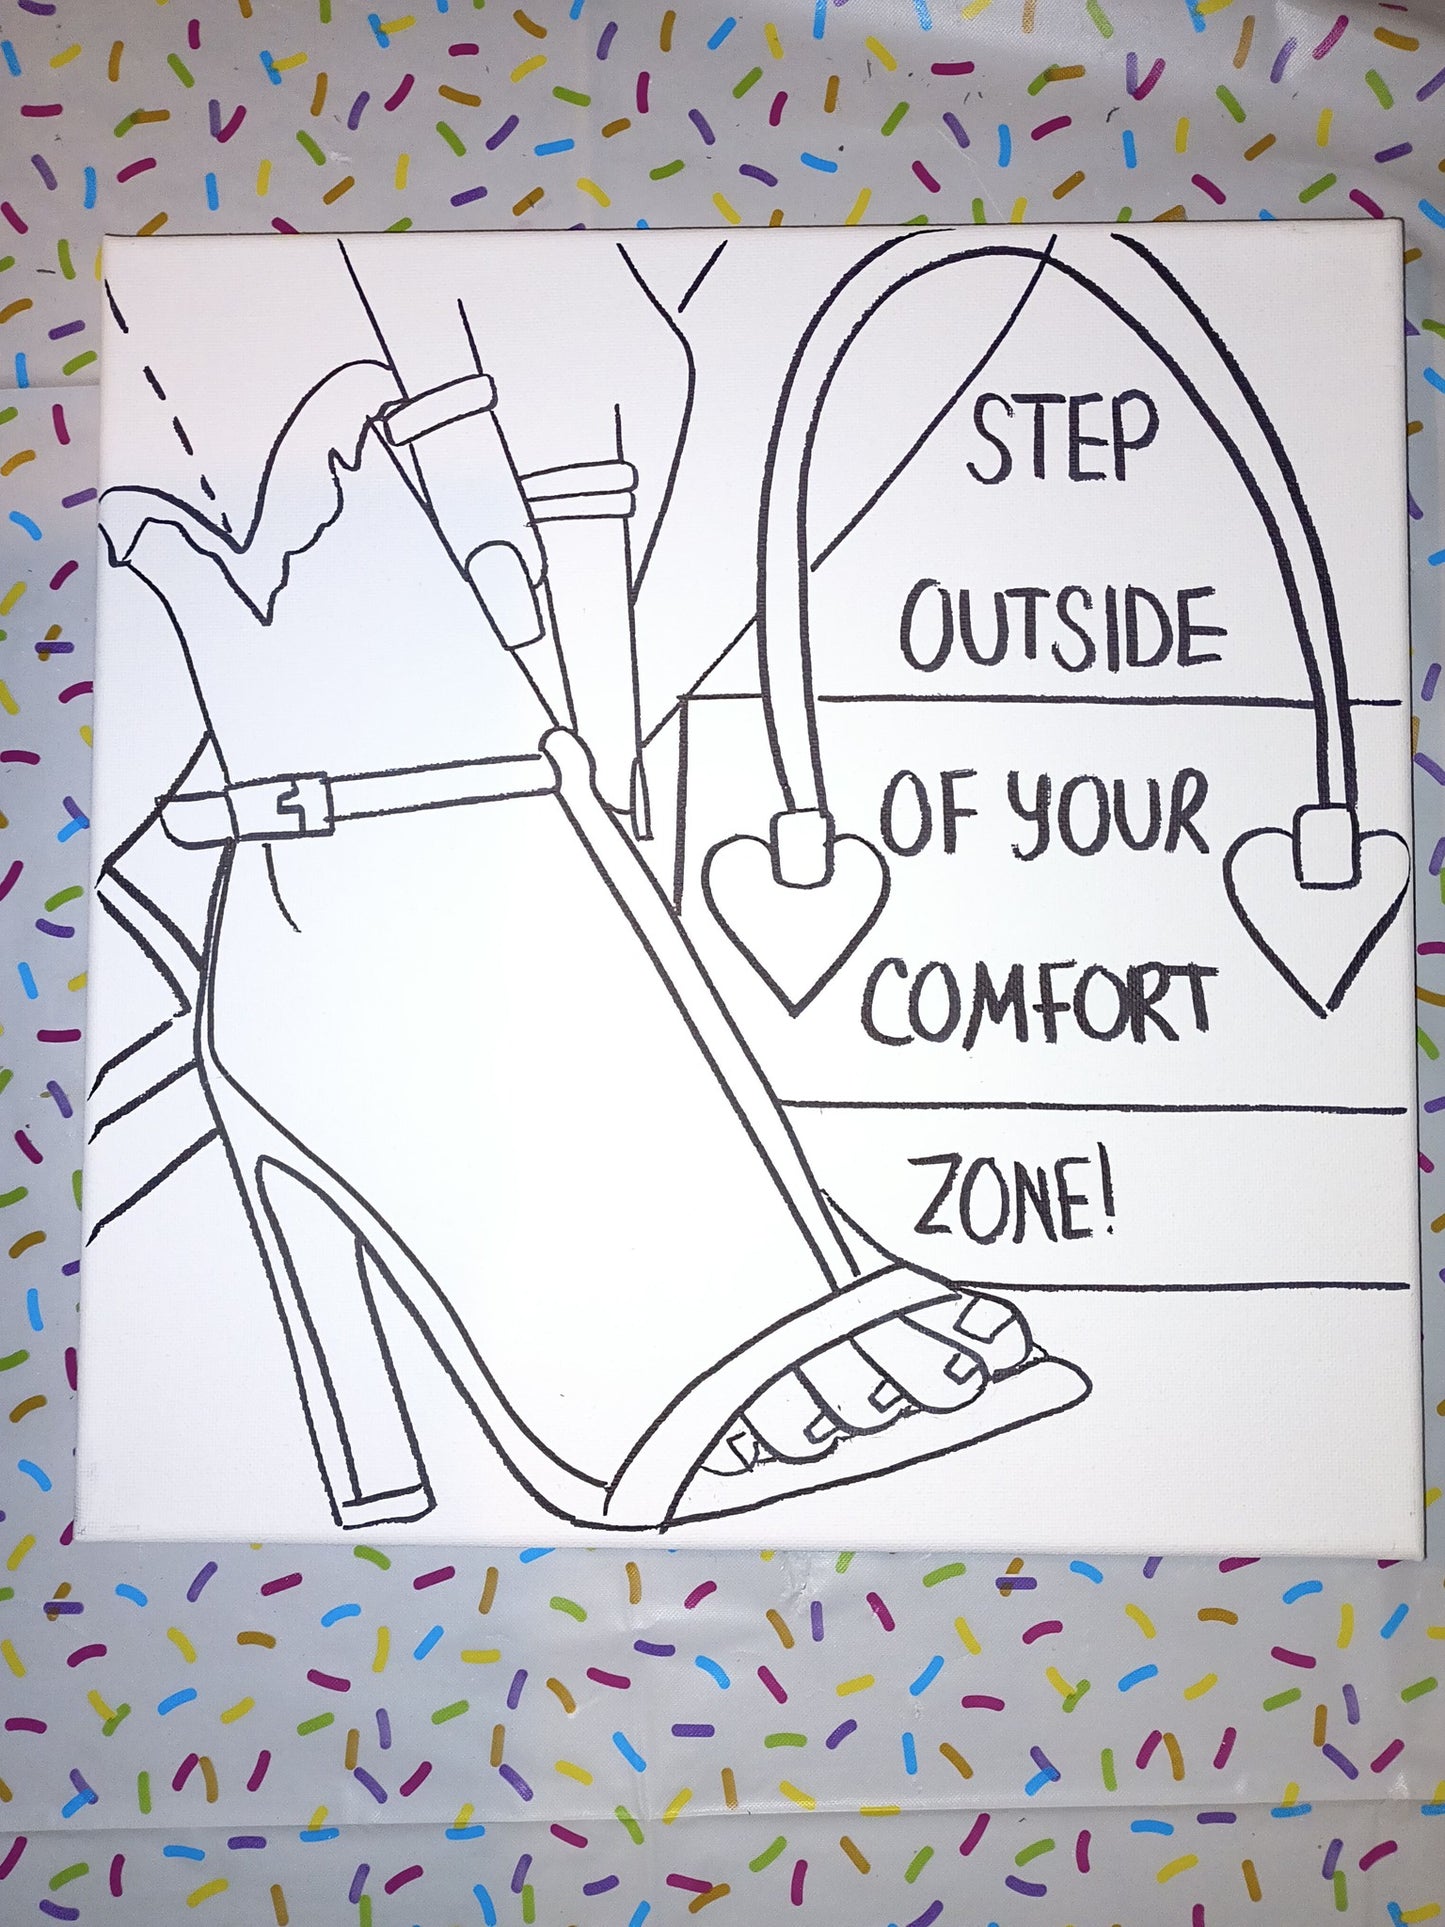 STEP
OUTSIDE
OF YOUR
COMFORT
ZONE!